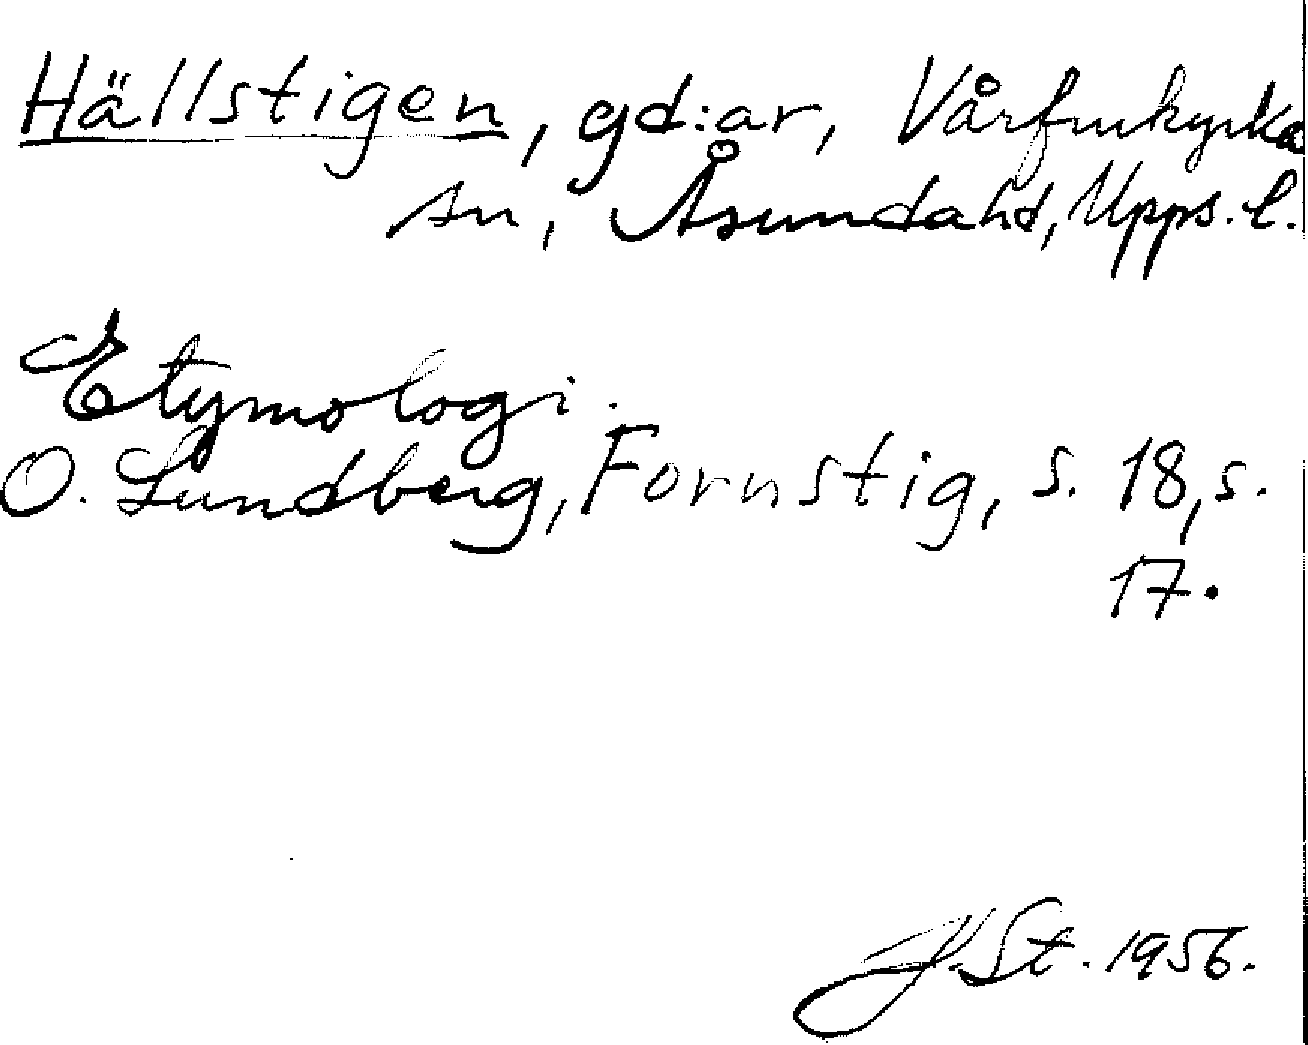 Hällstigen, gd:ar, Vårfrukyrka
sn, Åsundahd, Upps. l.
Etymologi.
O. Lundberg, Fornstig, s. 18, s.
17.
J. St. 1956.